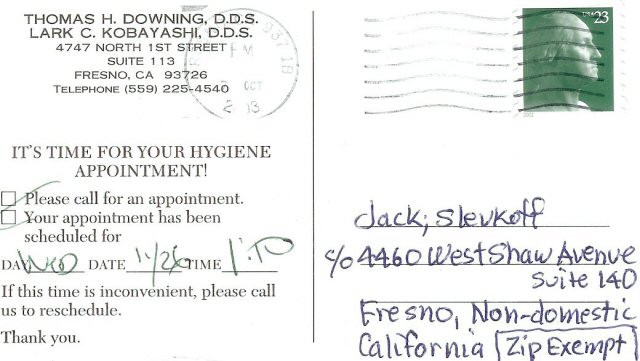 THOMAS H. DOWNING, D.D.S.
LARK C. KOBAYASHI, D.D.S.
4747 NORTH 1ST STREET
SUITE 113
FRESNO, CA 93726
TELEPHONE (559) 225-4540
937 1B
PM
OCT
USA 23
IT'S TIME FOR YOUR HYGIENE
APPOINTMENT!
Please call for an appointment.
Your appointment has been
scheduled for
DAY WED DATE 11/26 TIME 1:10
If this time is inconvenient, please call
us to reschedule.
Thank you.
Jack; Slevkoff
c/o 4460 West Shaw Avenue
Suite 140
Fresno, Non-domestic
California [Zip Exempt]